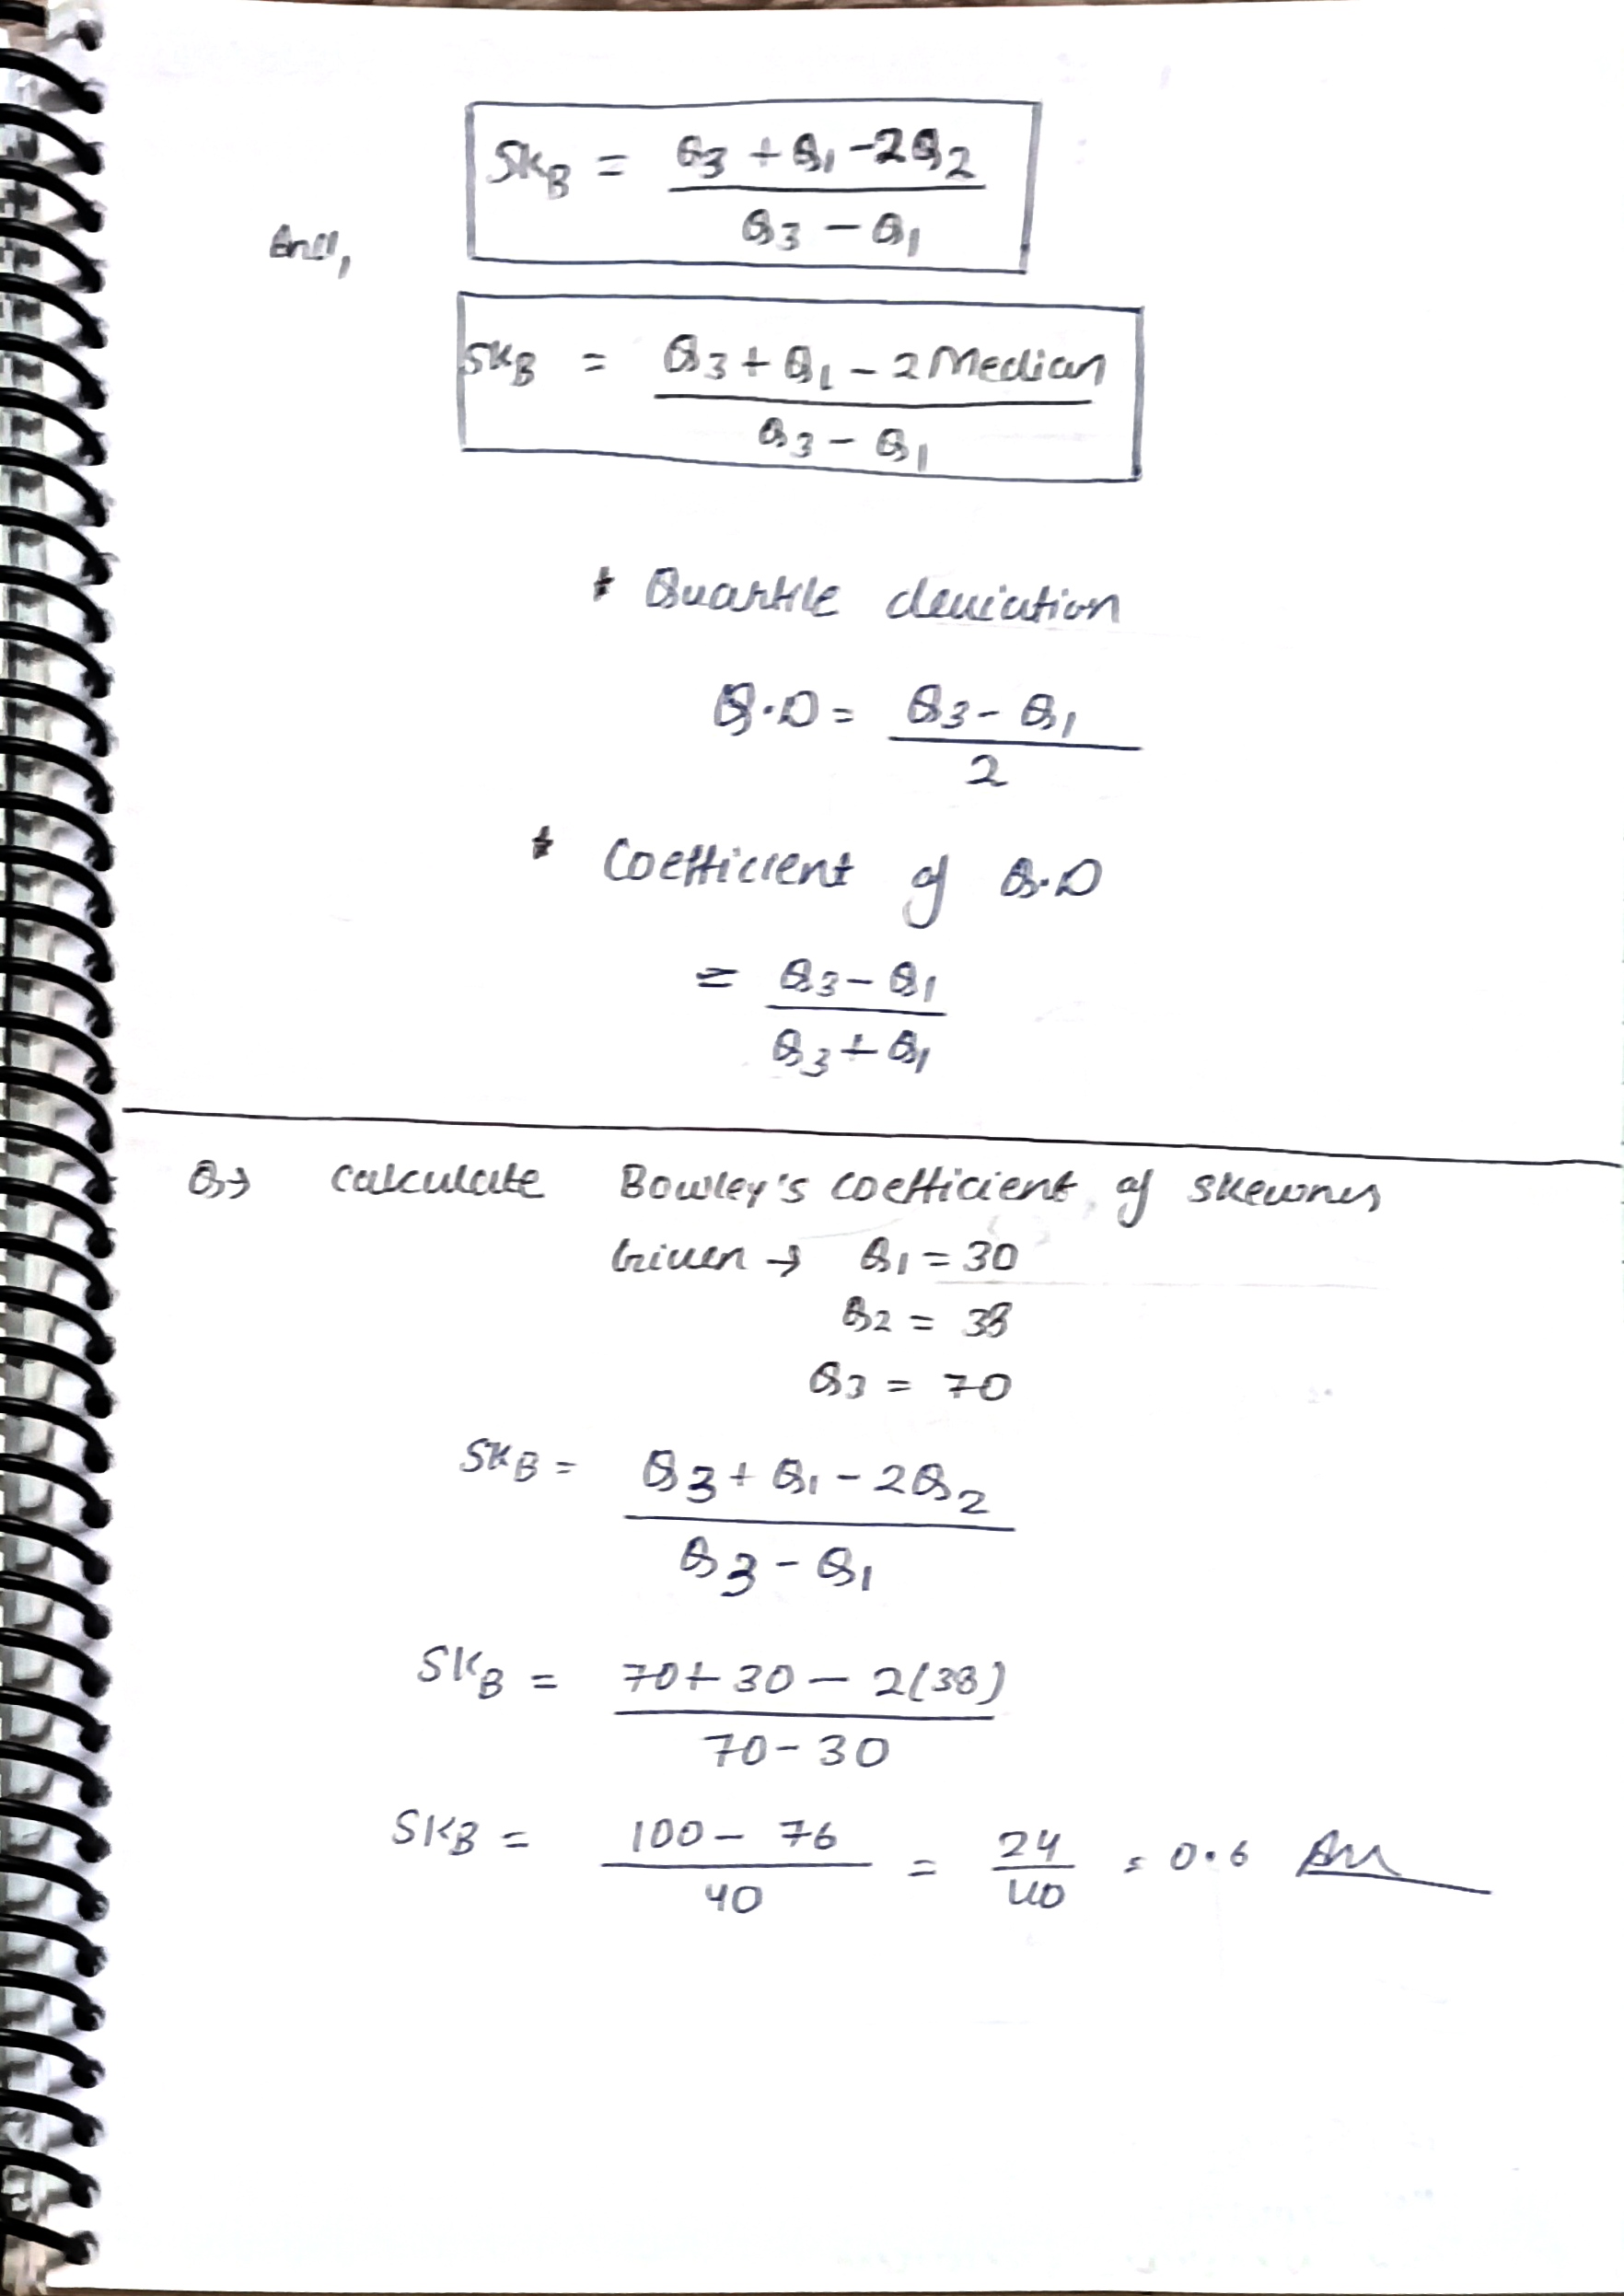 SKB = Q3 + Q1 - 2Q2 / Q3 - Q1
SKB = Q3 + Q1 - 2 Median / Q3 - Q1
* Quartile deviation
Q.D = Q3 - Q1 / 2
* Coefficient of Q.D
= Q3 - Q1 / Q3 + Q1
Q→ Calculate Bowley's coefficient of skewness
Given → Q1 = 30
Q2 = 38
Q3 = 70
SKB = Q3 + Q1 - 2Q2 / Q3 - Q1
SKB = 70 + 30 - 2(38) / 70 - 30
SKB = 100 - 76 / 40 = 24 / 40 = 0.6 Ans